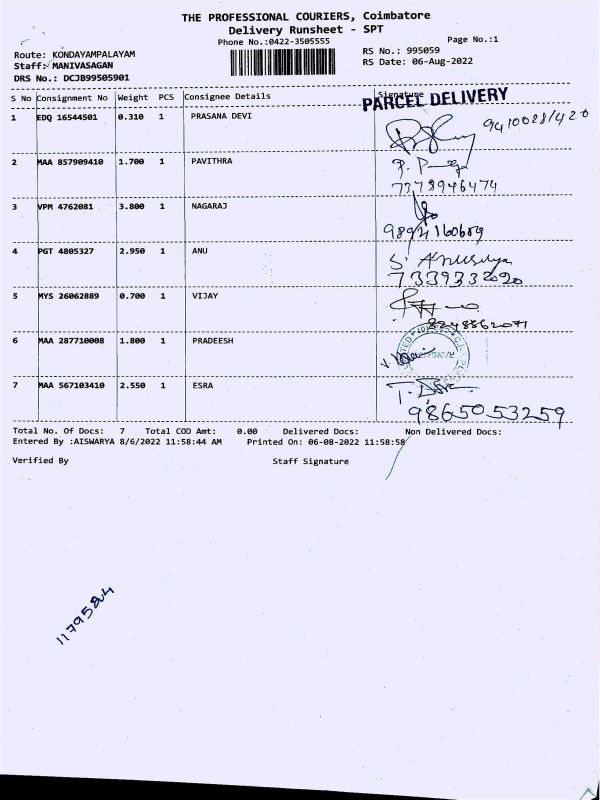 THE PROFESSIONAL COURIERS, Coimbatore
Delivery Runsheet - SPT
Phone No.:0422-3505555
Page No.:1
Route: KONDAYAMPALAYAM
RS No.: 995059
Staff: MANIVASAGAN
RS Date: 06-Aug-2022
DRS No.: DCJB99505901
S No Consignment No Weight PCS Consignee Details Signature
PARCEL DELIVERY
1 EDQ 16544501 0.310 1 PRASANA DEVI
2 MAA 857909410 1.700 1 PAVITHRA
7373946474
3 VPM 4762081 3.800 1 NAGARAJ
4 PGT 4805327 2.950 1 ANU
7339332020
5 MYS 26062889 0.700 1 VIJAY
6 MAA 287710008 1.800 1 PRADEESH
7 MAA 567103410 2.550 1 ESRA
9865053259
Total No. Of Docs: 7 Total COD Amt: 0.00 Delivered Docs: Non Delivered Docs:
Entered By :AISWARYA 8/6/2022 11:58:44 AM Printed On: 06-08-2022 11:58:58
Verified By Staff Signature